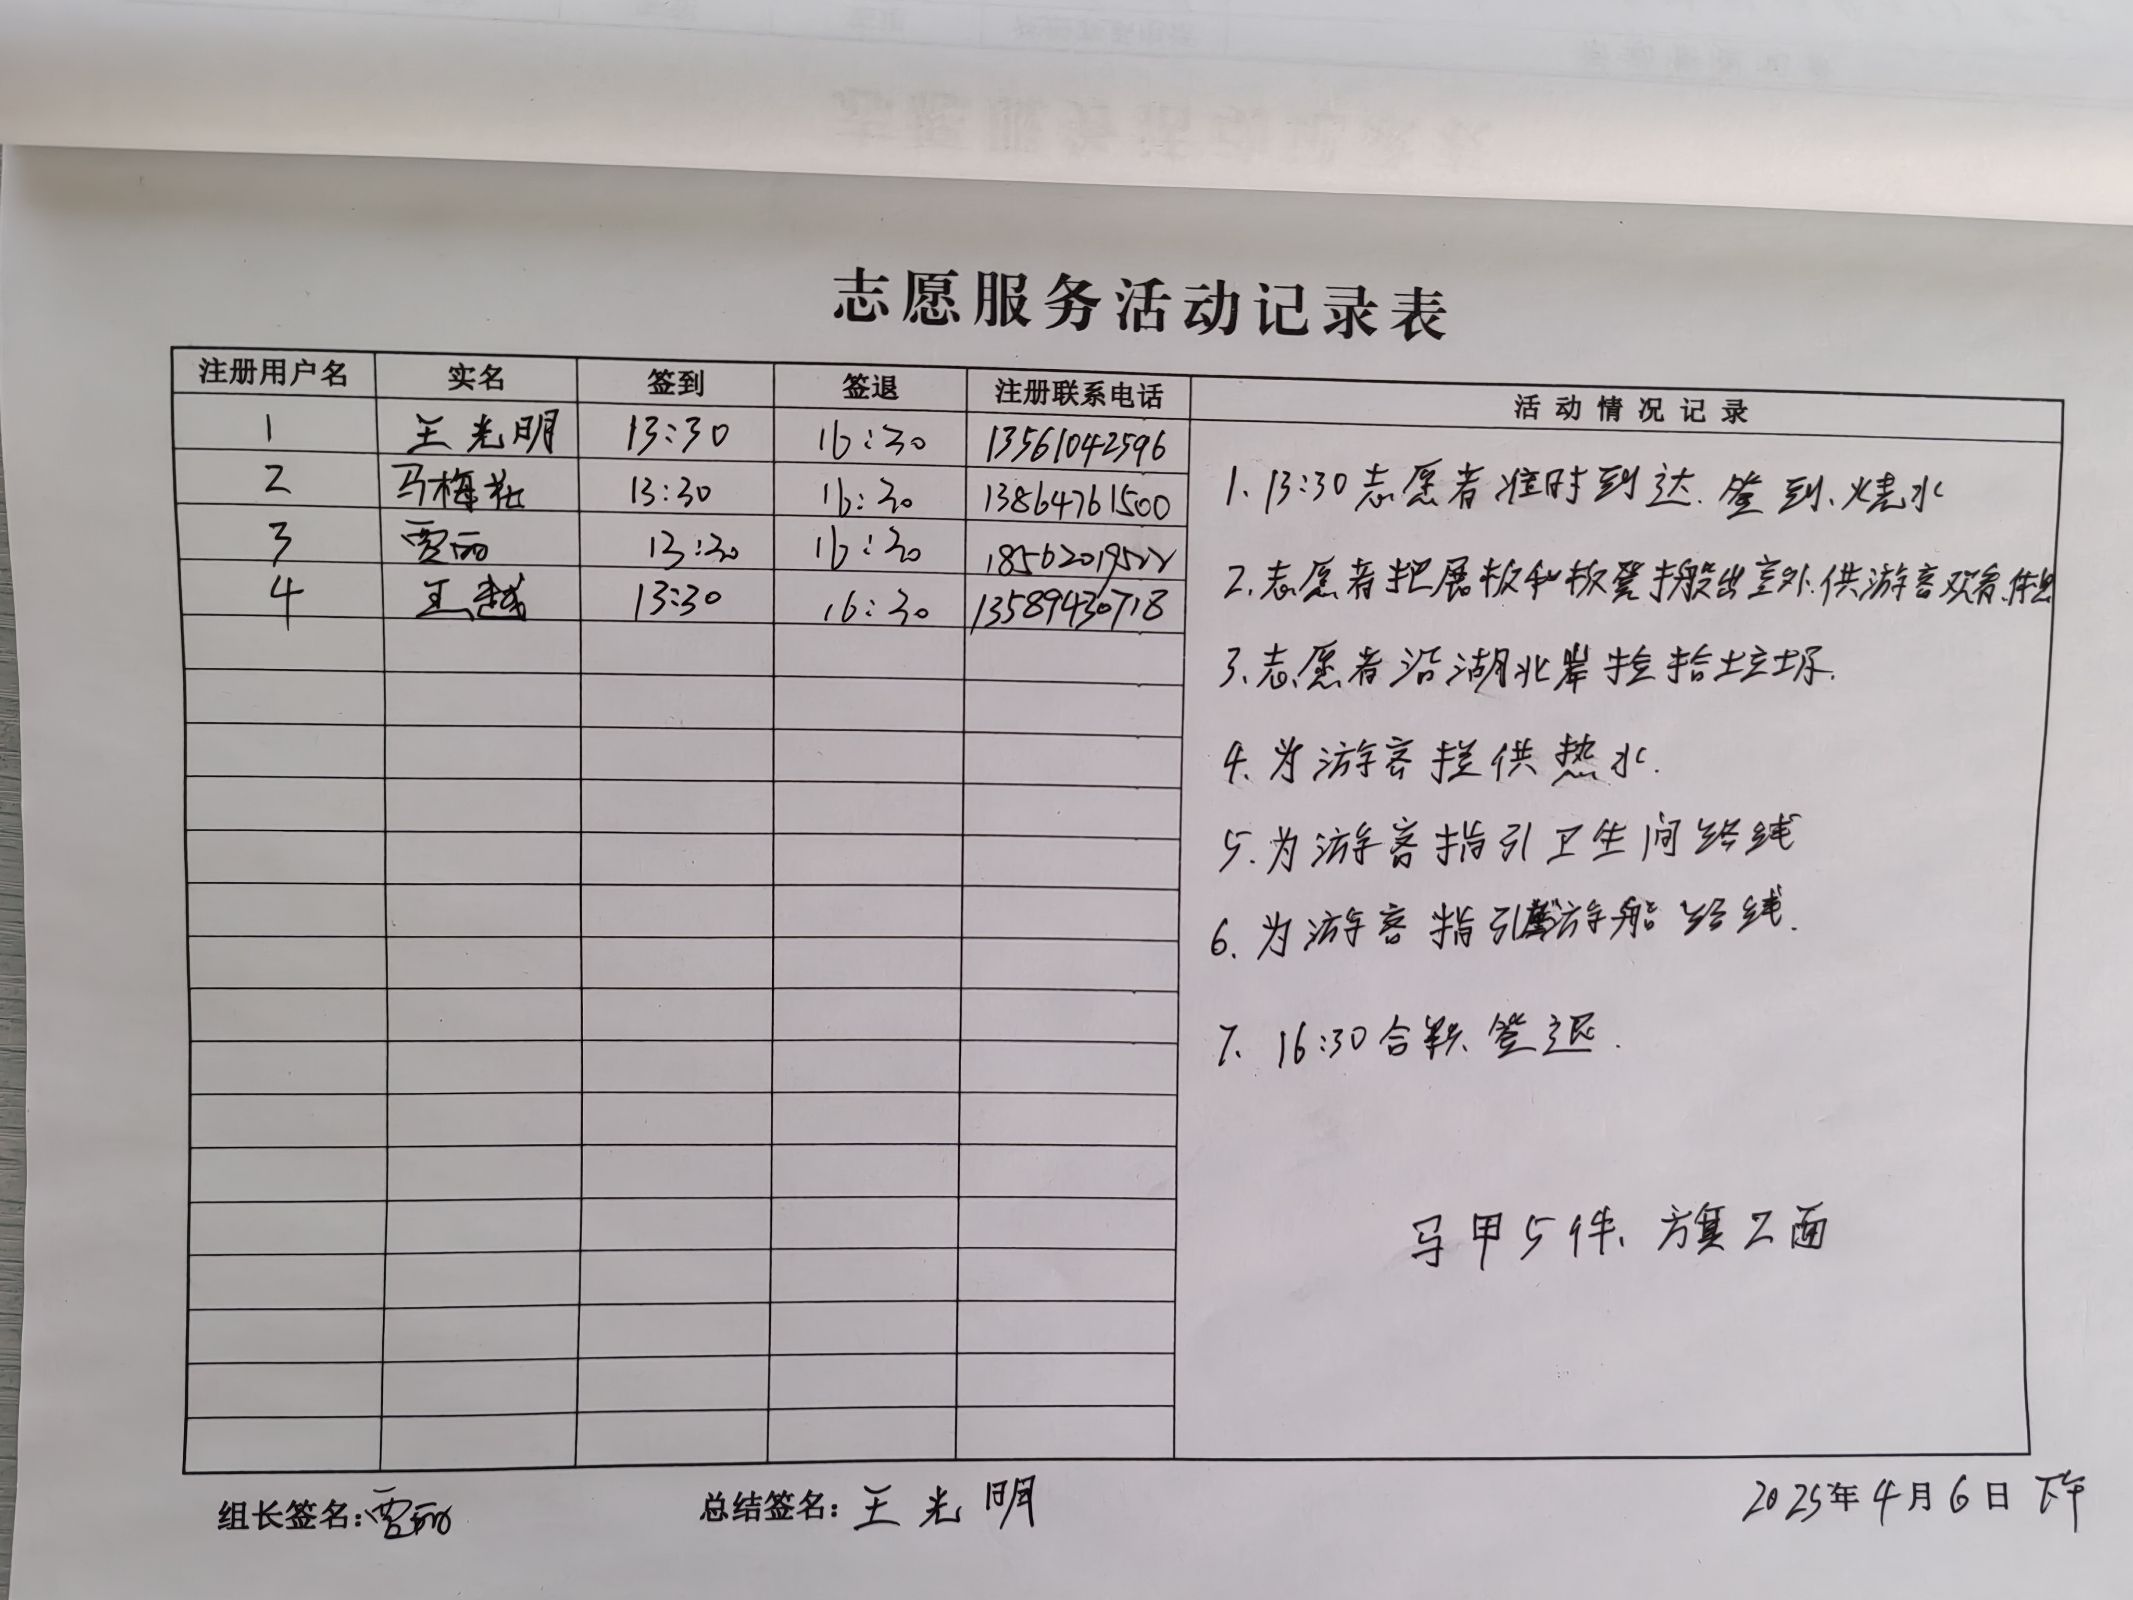 志愿服务活动记录表
注册用户名 实名 签到 签退 注册联系电话 活动情况记录
1 王光明 13:30 16:30 13561042596
2 马梅花 13:30 16:30 13864761500
3 贾丽 13:30 16:30 18562019522
4 王越 13:30 16:30 13589430718
1、13:30志愿者准时到达、签到、烧水
2、志愿者把展板和板凳搬出室外、供游客观看、休息
3、志愿者沿湖北岸捡拾垃圾.
4、为游客提供热水.
5、为游客指引卫生间路线
6、为游客指引游船路线.
7、16:30合影、签退.
马甲5件、旗2面
组长签名:贾丽 总结签名:王光明 2025年4月6日 下午